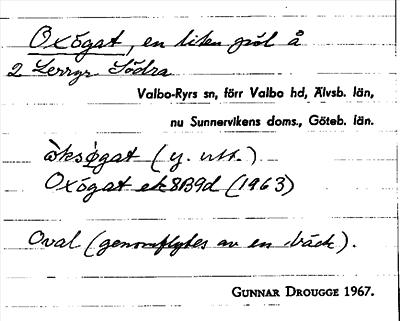 Oxögat, en liten göl å
2 Lerryr Södra
Valbo-Ryrs sn, förr Valbo hd, Älvsb. län,
nu Sunnervikens doms., Göteb. län.
òksø̀gat (y. utt.)
Oxögat ek 8B9d (1963)
Oval (genomflytes av en bäck).
GUNNAR DROUGGE 1967.